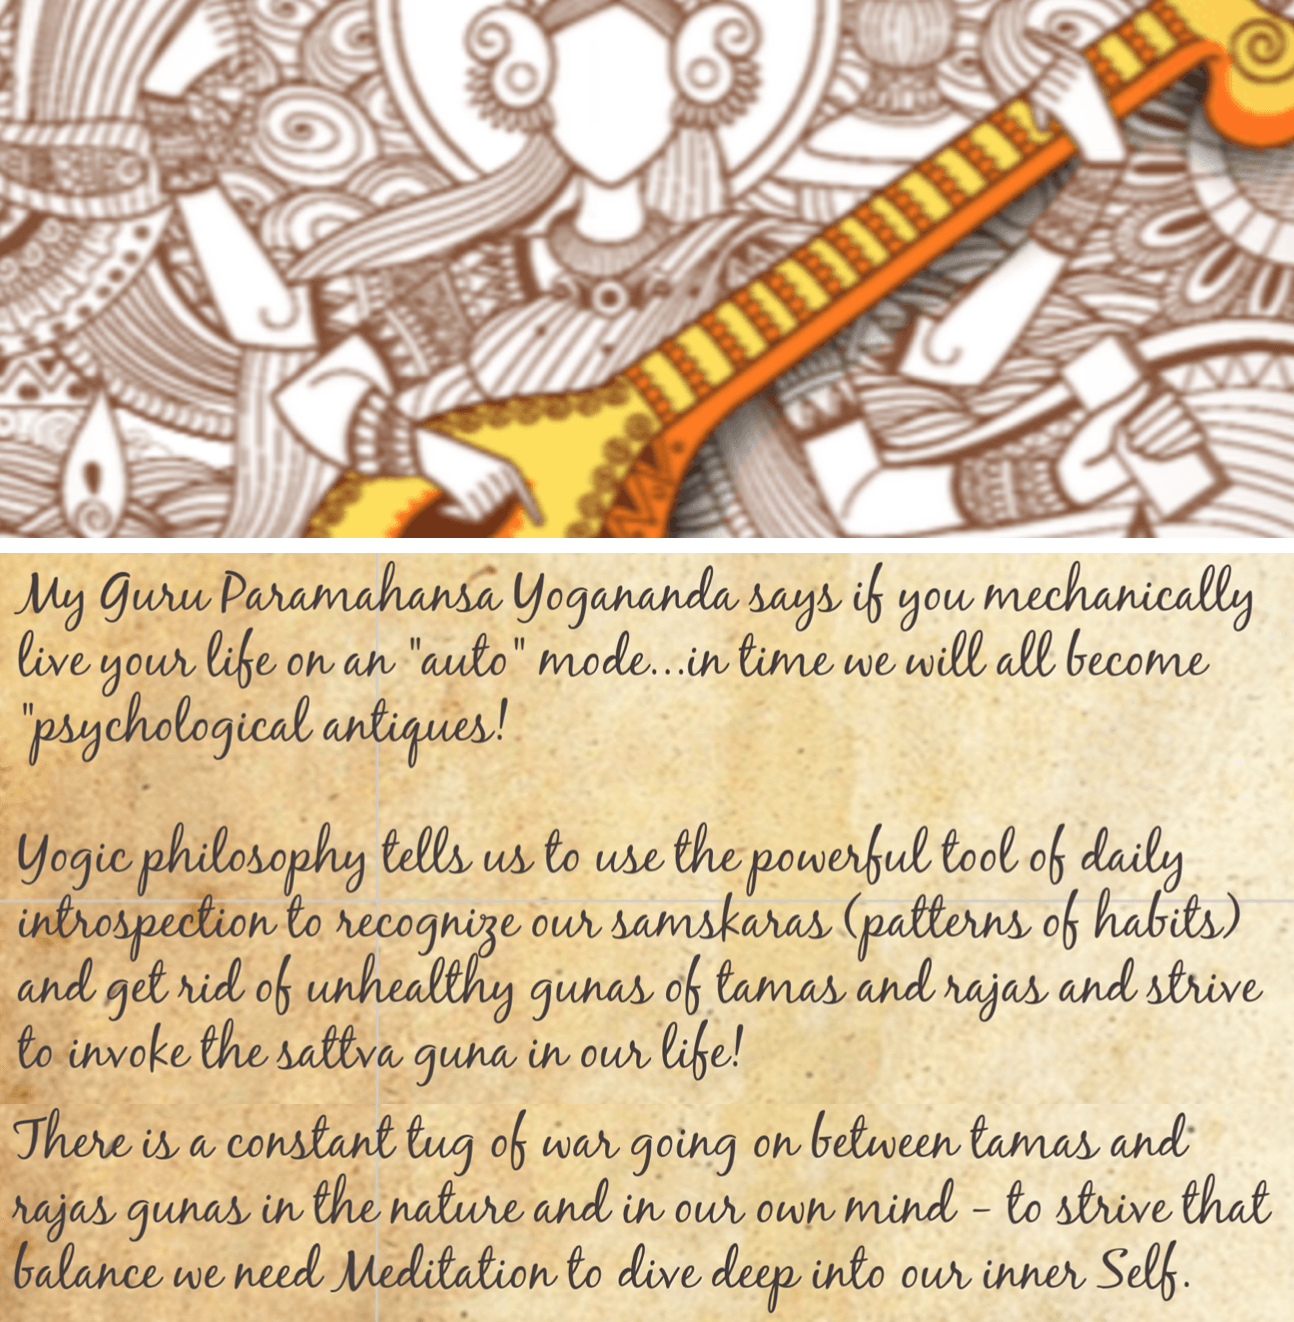 My Guru Paramahansa Yogananda says if you mechanically
live your life on an "auto" mode...in time we will all become
"psychological antiques!
Yogic philosophy tells us to use the powerful tool of daily
introspection to recognize our samskaras (patterns of habits)
and get rid of unhealthy gunas of tamas and rajas and strive
to invoke the sattva guna in our life!
There is a constant tug of war going on between tamas and
rajas gunas in the nature and in our own mind - to strive that
balance we need Meditation to dive deep into our inner Self.